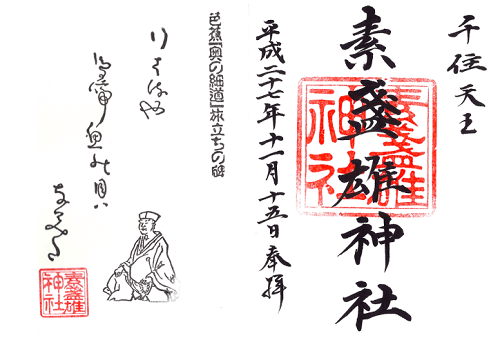 千住天王
素盞雄神社
素盞雄神社
平成二十七年十一月十五日奉拝
芭蕉「奥の細道」旅立ちの碑
行はるや
鳥啼魚の目ハ
なみだ
素盞雄神社